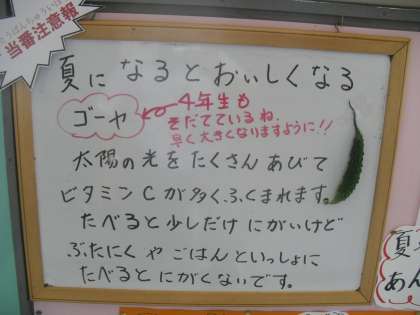 当番注意報
夏になるとおいしくなる
ゴーヤ
4年生も
そだてているね
早く大きくなりますように!!
太陽の光をたくさんあびて
ビタミンCが多くふくまれます。
たべると少しだけにがいけど
ぶたにくやごはんといっしょに
たべるとにがくないです。
夏
あん